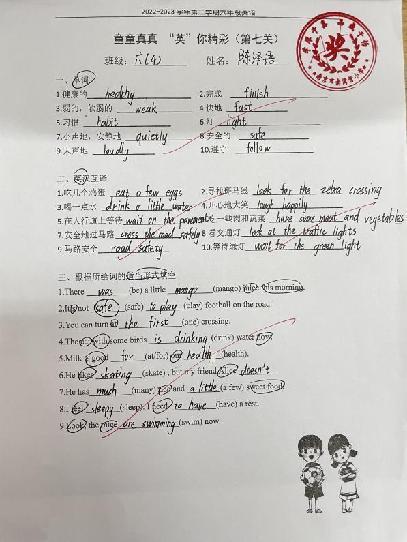 2022-2023学年第二学期六年级英语
童童真真 “英”你精彩（第七关）
班级：六(4) 姓名：陈泽语
奖
一、单词
1.健康的 healthy 2.完成 finish
3.弱的，软弱的 weak 4.快地 fast
5.习惯 habit 6. right
7.小声地，安静地 quietly 8.安全的 safe
9.大声地 loudly 10.遵守 follow
二、英汉互译
1.吃几个鸡蛋 eat a few eggs 2.寻找斑马线 look for the zebra crossing
3.喝一点水 drink a little water 4.开心地大笑 laugh happily
5.在人行道上等待 wait on the pavement 6. 一些肉和蔬菜 have some meat and vegetables
7.安全地过马路 cross the road safely 8.看交通灯 look at the traffic lights
9.马路安全 road safety 10.等待绿灯 wait for the green light
三、根据所给词的适当形式填空
1.There was (be) a little mango (mango) juice this morning.
2.It's not safe (safe) to play (play) football on the road.
3.You can turn at the first (one) crossing.
4.The with some birds is drinking (drink) water now.
5.Milk good for (at/for) our health (health).
6.He likes skating (skate), but my friend doesn't
7.He has much (many) and a little (a few) sweet food.
8. sleepy (sleep). I need to have (have) a rest.
9.Look, the mice are swimming (swim) now